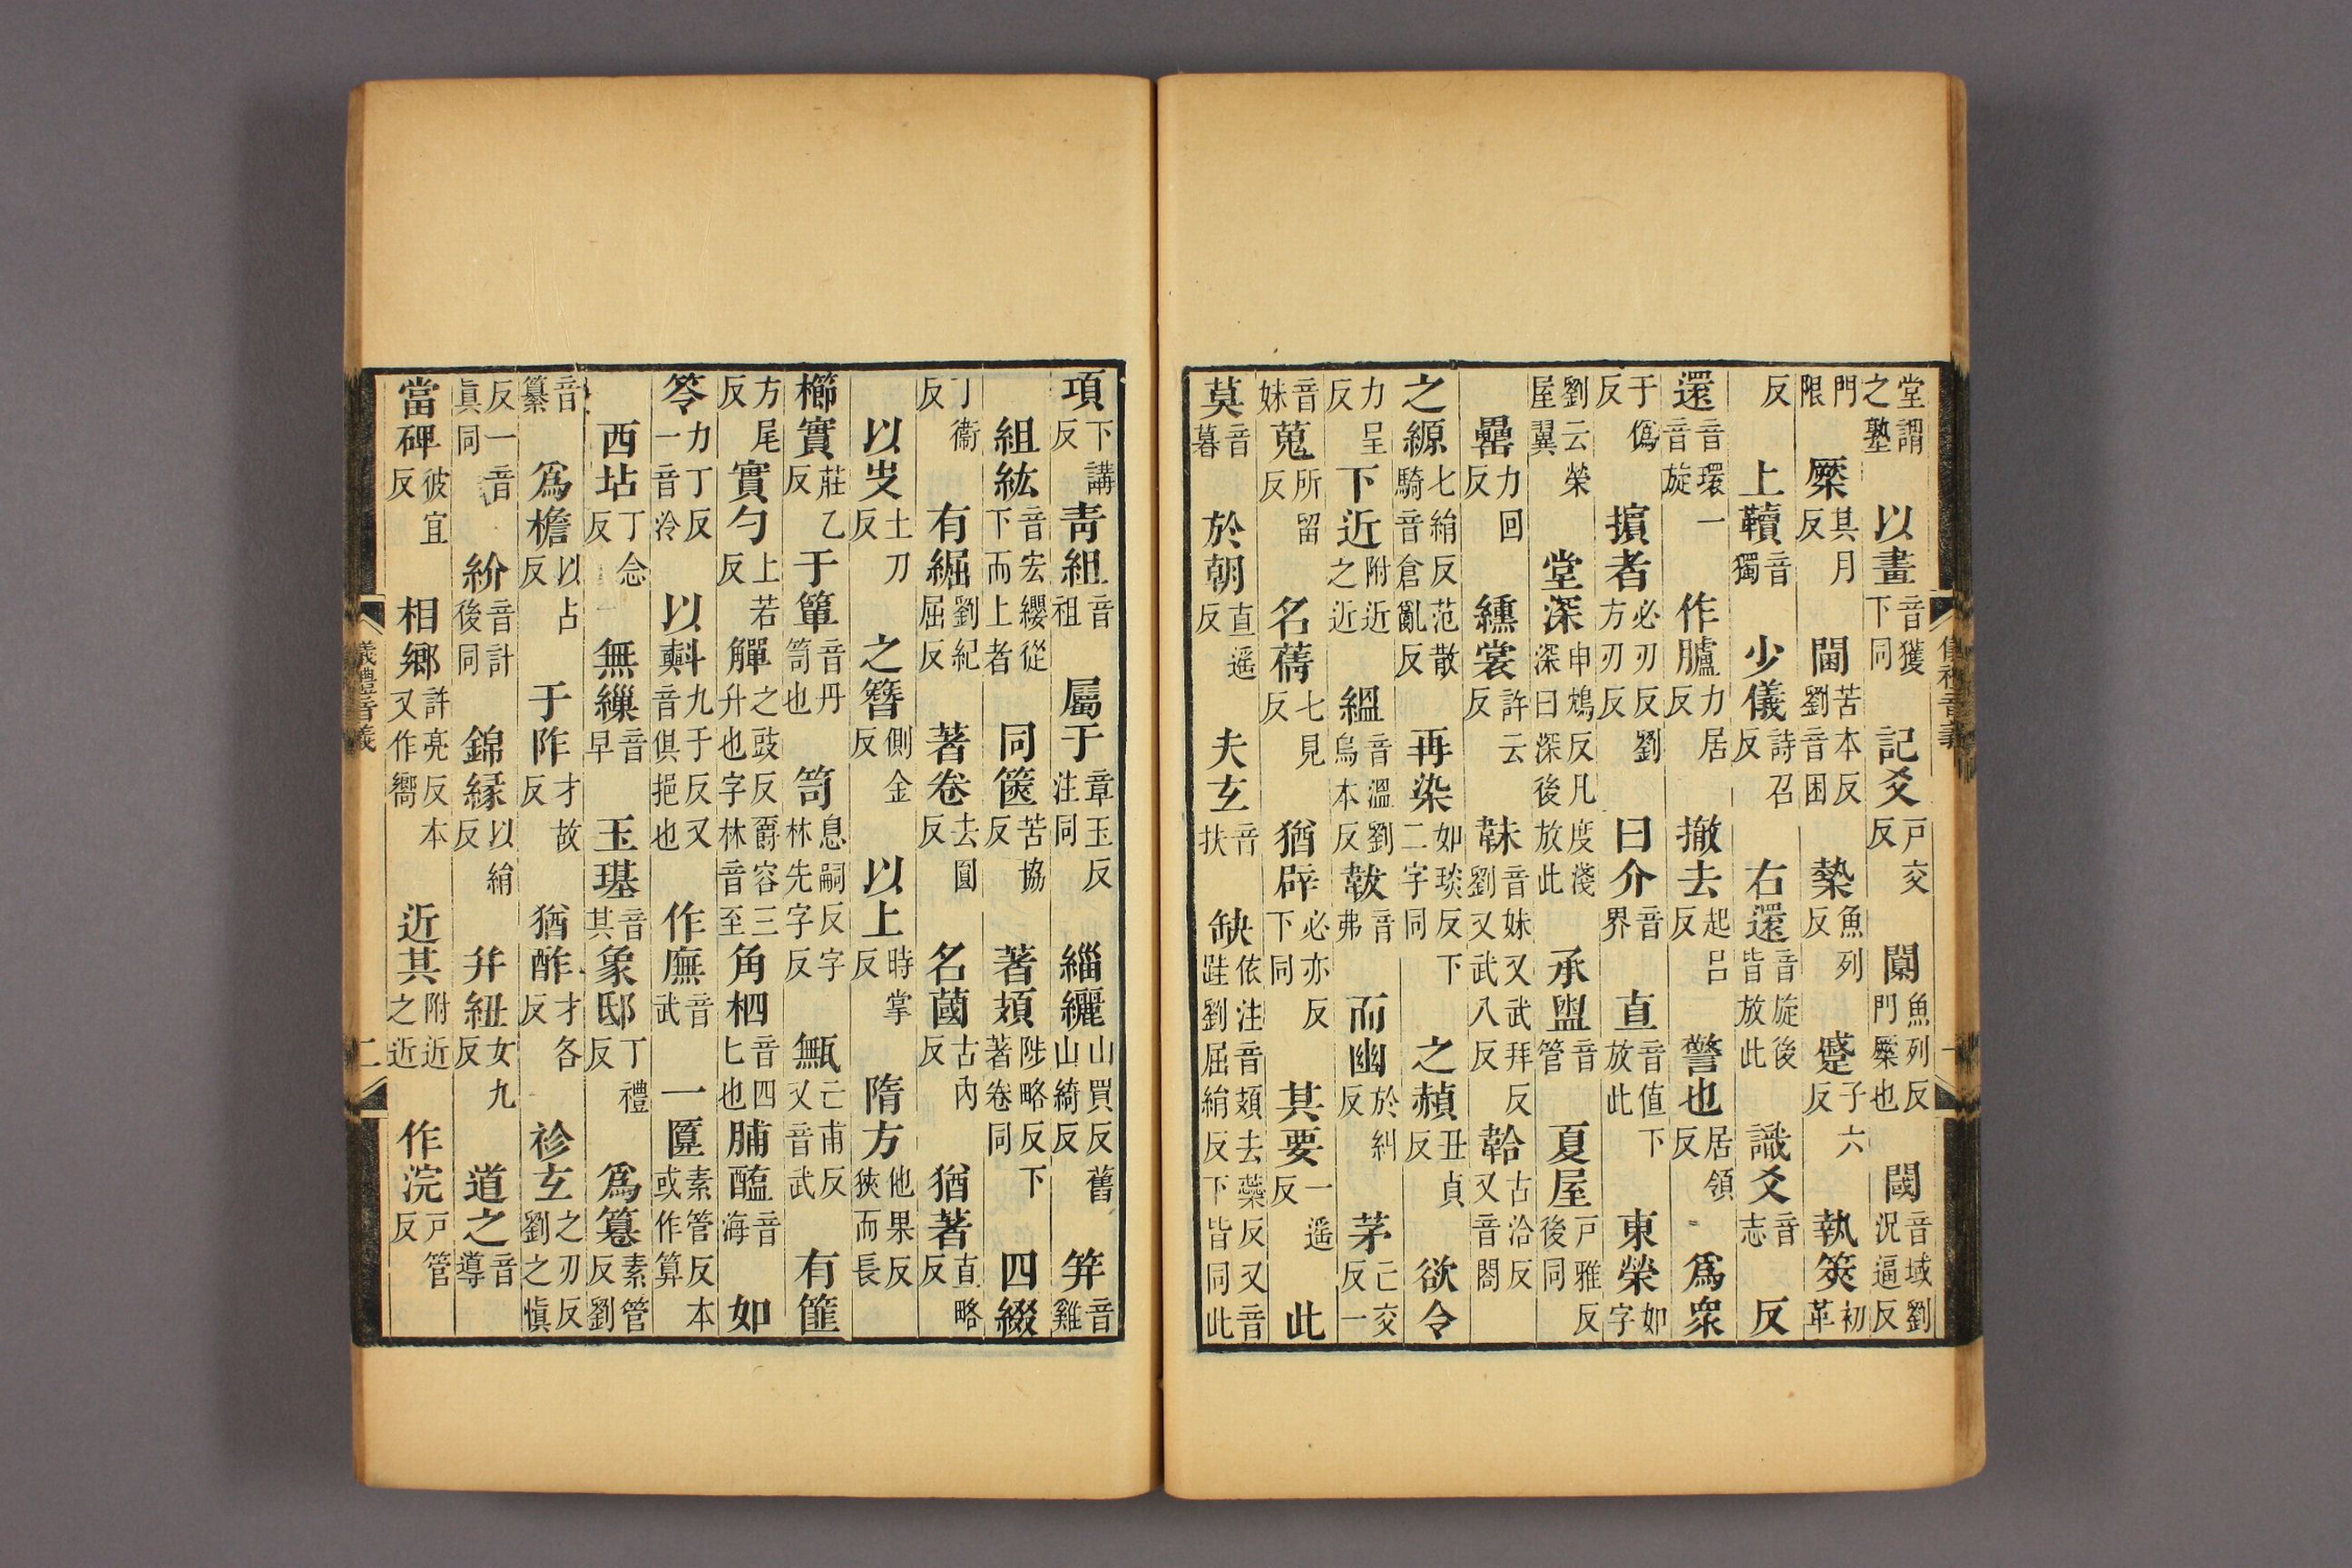 堂謂之塾以畫音獲下同記爻戶交反闑魚列反門橜也閾音域劉況逼反
門限橜其月反閫苦本反劉音困槷魚列反蹙子六反執筴初革
反上韇音獨少儀詩召反右還音旋後皆放此識爻音志反
還音環一音旋作臚力居反撤去起呂反警也居領反爲衆
于僞反擯者必刃反劉方刃反曰介音界直音值下放此東榮如字
劉云榮屋翼堂深申鴆反凡度淺深曰深後放此承盥音管夏屋戶雅反後同
罍力回反纁裳許云反韎音妹又武拜反劉又武八反韐古洽反又音閤
之縓七絹反范散騎音倉亂反再染如琰反下二字同之赬丑貞反欲令
力呈反下近附近之近縕音溫劉烏本反韍音弗而幽於糾反茅亡交反一
音妹蒐所留反名蒨七見反猶辟必亦反下同其要一遥反此
莫音暮於朝直遥反夫玄音扶缺依注音頍去蘂反又音跬劉屈絹反下皆同此
儀禮音義 一
項下講反青組音祖屬于章玉反注同緇纚山買反舊山綺反笄音雞
組紘音宏纓從下而上者同篋苦協反著頍陟略反下著卷同四綴
丁衞反有劉紀屈反著卷去圓反名蔮古內反猶著直略反
以土刀反之簪側金反以上時掌反隋方他果反狹而長
櫛實莊乙反于簞音丹笥也笥息嗣反字林先字反甒亡甫反又音武有篚
方尾反實勺上若反觶之豉反爵容三升也字林音至角柶音四匕也脯醢音海如
笭力丁反一音泠以㪺九于反又音俱挹也作廡音武一匴素管反本或作算
西坫丁念反無繅音早玉璂音其象邸丁禮反爲篹素管反劉
音纂爲檐以占反于阼才故反猶酢才各反袗玄之刃反劉之愼
反一音眞同紒音計後同錦緣以絹反幷紐女九反道之音導
當碑彼宜反相鄉許亮反本又作嚮近其附近之近作浣戶管反
儀禮音義 二